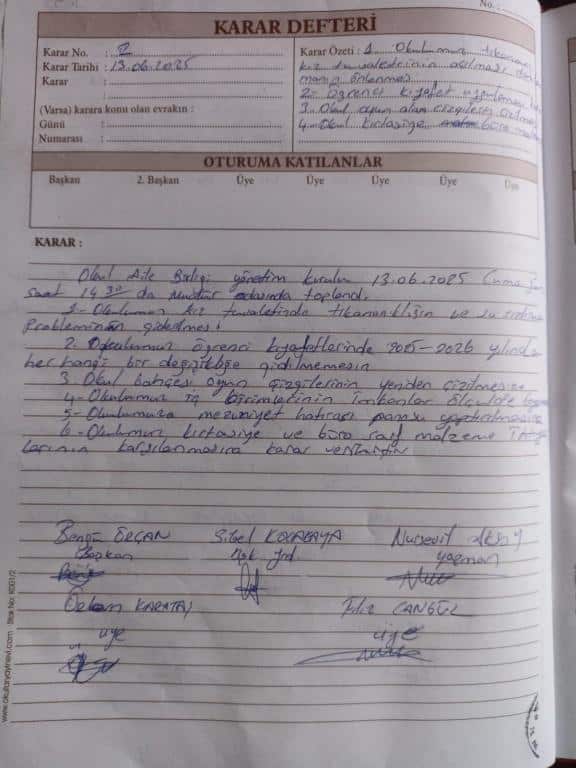 No. :
KARAR DEFTERİ
Karar No. : 2
Karar Tarihi : 13.06.2025
Karar :
(Varsa) karara konu olan evrakın :
Günü :
Numarası :
Karar Özeti : 1 Okulumuz tıkanan
kız tuvaletinin açılması
önlenmesi
2- Öğrenci kıyafet
3. Okul oyun alan çizgilerin
4- Okul kırtasiye büro
OTURUMA KATILANLAR
Başkan 2. Başkan Üye Üye Üye Üye Üye
KARAR :
Okul Aile Birliği yönetim kurulu 13.06.2025 Cuma
saat 14 30 da müdür odasında toplandı.
1- Okulumuz kız tuvaletinde tıkanıklığın ve
probleminin giderilmesi
2. Okulumuz öğrenci kıyafetlerinde 2025-2026 yılında
herhangi bir değişikliğe gidilmemesin
3. Okul bahçesi oyun çizgilerinin yeniden çizilmesine
4- Okulumuz birimlerinin imkanlar ölçüde
5- Okulumuza mezuniyet hatırası panosu yaptırılmasına
6- Okulumuz kırtasiye ve büro sarf malzeme
larının karşılanmasına karar verilmiştir
Bengü ÖRÇAN Sibel KOCABAYA Nursevil
Başkan Bşk Yrd. yazman
Özkan KARATAY Filiz CANGÜL
üye üye
www.okulturyayinevi.com Stok No: K001/2